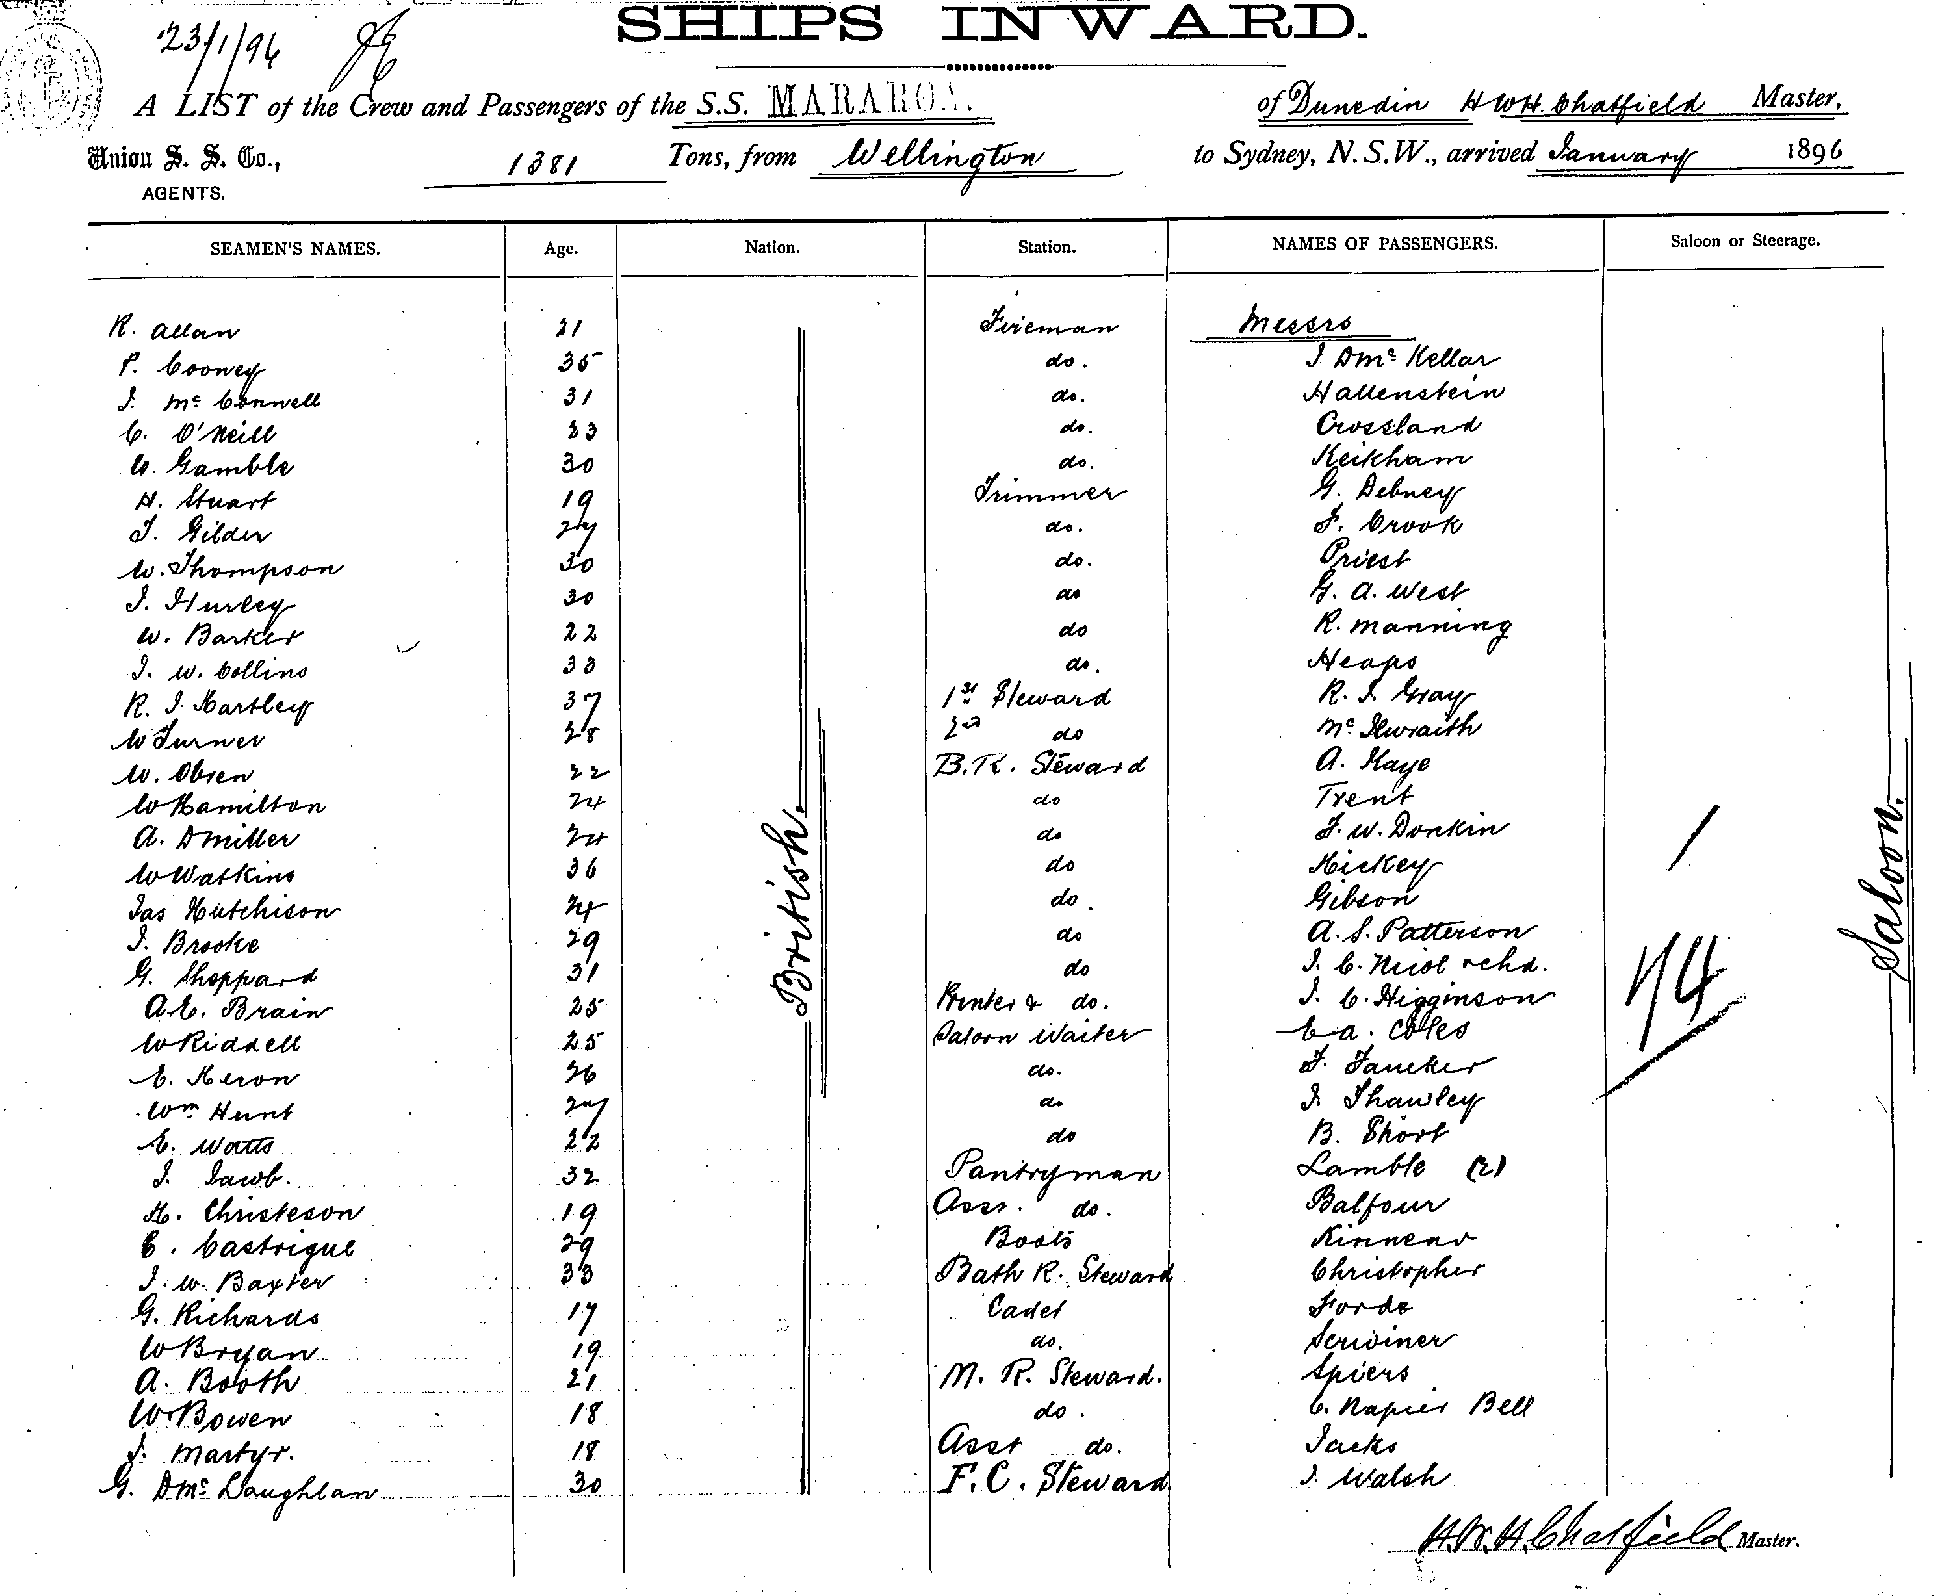 SHIPS INWARD.
23/1/96
A LIST of the Crew and Passengers of the S.S. MARAROA. of Dunedin H W H. Chatfield Master,
Union S. S. Co., 1381 Tons, from Wellington to Sydney, N.S.W., arrived January 1896
AGENTS.
SEAMEN'S NAMES. Age. Nation. Station. NAMES OF PASSENGERS. Saloon or Steerage.
R. Allan 21 Fireman Messrs
P. Cooney 35 do. J D Mc Kellar
J. Mc Connell 31 do. Hallenstein
C. O'Neill 23 do. Crossland
W. Gamble 30 do. Keikham
H. Stuart 19 Trimmer G. Debney
T. Gilder 27 do. F. Crook
W. Thompson 30 do. Priest
J. Hurley 30 do G. A. West
W. Barker 22 do R. Manning
J. W. Collins 33 do. Heaps
R. J. Hartley 37 1st Steward R. J. Gray
W Turner 28 2nd do Mc Ilwraith
W. Obren 22 B.R. Steward A. Kaye
W Hamilton 24 do Trent
A. D Miller 24 do F. W. Donkin
W Watkins 36 do Hickey
Jas Hutchison 24 do. Gibson
J. Brooke 29 do A. S. Patterson
G. Sheppard 31 do J. C. Nicol & chd.
A. E. Brain 25 Printer & do. J. C. Higginson
W Riddell 25 Saloon Waiter E A. Coles
E. Heron 26 do. F. Faucker
Wm Hunt 27 do J. Thawley
E. Watts 22 do B. Short
J. Jacob. 32 Pantryman Lamble (2)
H. Christeson 19 Asst. do. Balfour
E. Castrique 29 Boots Kinnear
J. W. Baxter 33 Bath R. Steward Christopher
G. Richards 17 Cadet Forde
W Bryan 19 do. Scriviner
A. Booth 21 M. R. Steward. Spiers
W Bowen 18 do. C. Napier Bell
J. Martyr. 18 Asst do. Jacks
G. D Mc Laughlan 30 F. C. Steward J. Walsh
British.
74
Saloon.
H. W. H. Chatfield Master.